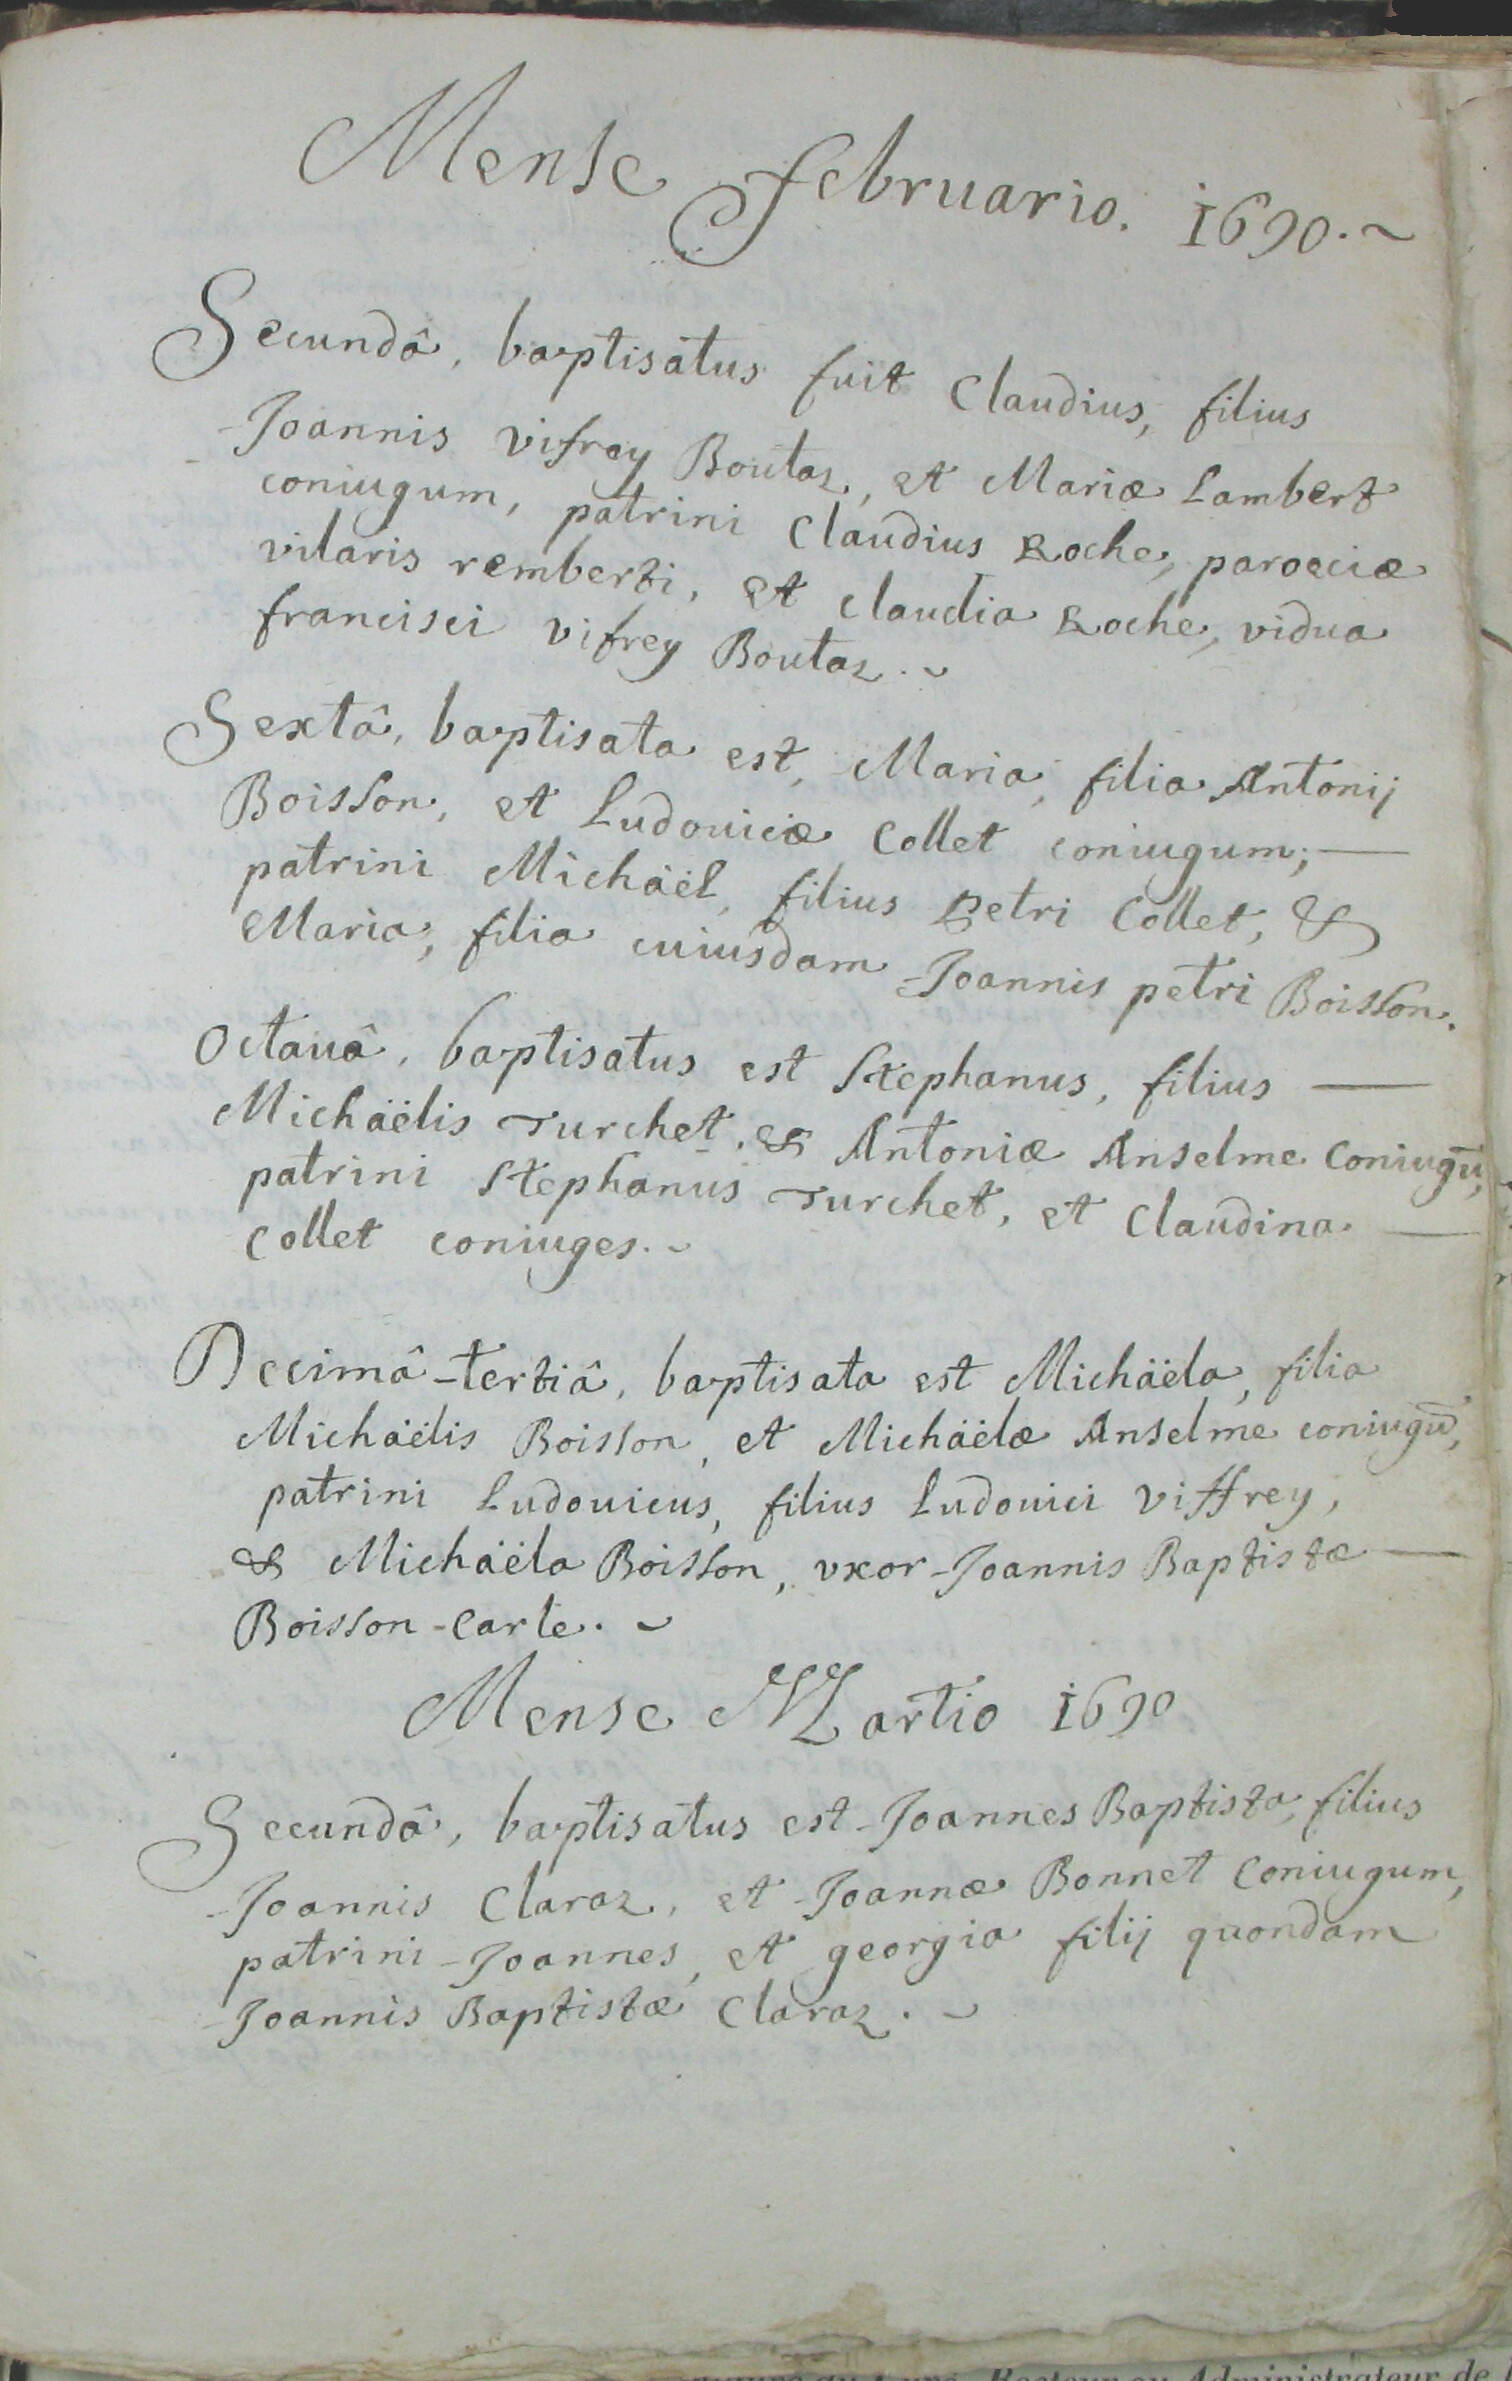 Mense februario. 1690.~
Secundâ, baptisatus fuit Claudius, filius
Joannis vifrey Boutaz, et Mariæ Lambert
coniugum, patrini Claudius Roche, paroeciæ
vilaris remberti, et claudia Roche, vidua
francisci vifrey Boutaz.~
Sextâ, baptisata est, Maria, filia Antonij
Boisson, et Ludouicæ Collet coniugum; —
patrini Michäël, filius Petri Collet, &
Maria, filia cuiusdam Joannis petri Boisson.
Octauâ, baptisatus est Stephanus, filius —
Michäëlis Turchet, & Antoniæ Anselme Coniugū,
patrini Stephanus Turchet, et Claudina —
Collet coniuges.~
Decimâ-tertiâ, baptisata est Michäëla, filia
Michäëlis Boisson, et Michäëlæ Anselme coniugū,
patrini Ludouicus, filius Ludouici viffrey,
& Michäëla Boisson, vxor Joannis Baptistæ —
Boisson-Carle.~
Mense Martio 1690
Secundâ, baptisatus est Joannes Baptista, filius
Joannis Claraz, et Joannæ Bonnet Coniugum,
patrini Joannes, et georgia filij quondam
Joannis Baptistæ Claraz.~
Recteur ou Administrateur de